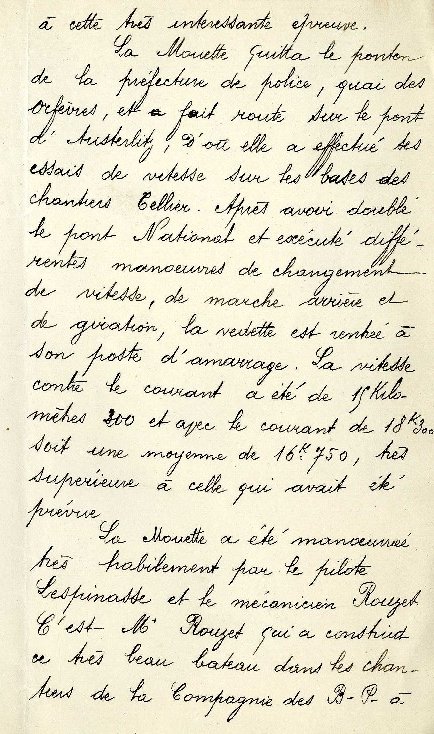 à cette très interessante épreuve.
La Mouette quitta le ponton
de la préfecture de police, quai des
Orfèvres, et a fait route sur le pont
d'Austerlitz, d'où elle a effectué ses
essais de vitesse sur les bases des
chantiers Tellier. Après avoir doublé
le pont National et exécuté diffé-
rentes manœuvres de changement
de vitesse, de marche arrière et
de giration, la vedette est rentrée à
son poste d'amarrage. La vitesse
contre le courant a été de 15 Kilo-
mètres 200 et avec le courant de 18K300
soit une moyenne de 16K.750, très
superieure à celle qui avait été
prévue
La Mouette a été manœuvreé
très habilement par le pilote
Lespinasse et le mécanicien Rouzet
C'est Mr Rouzet qui a construit
ce très beau bateau dans les chan-
tiers de la Compagnie des B-P- à